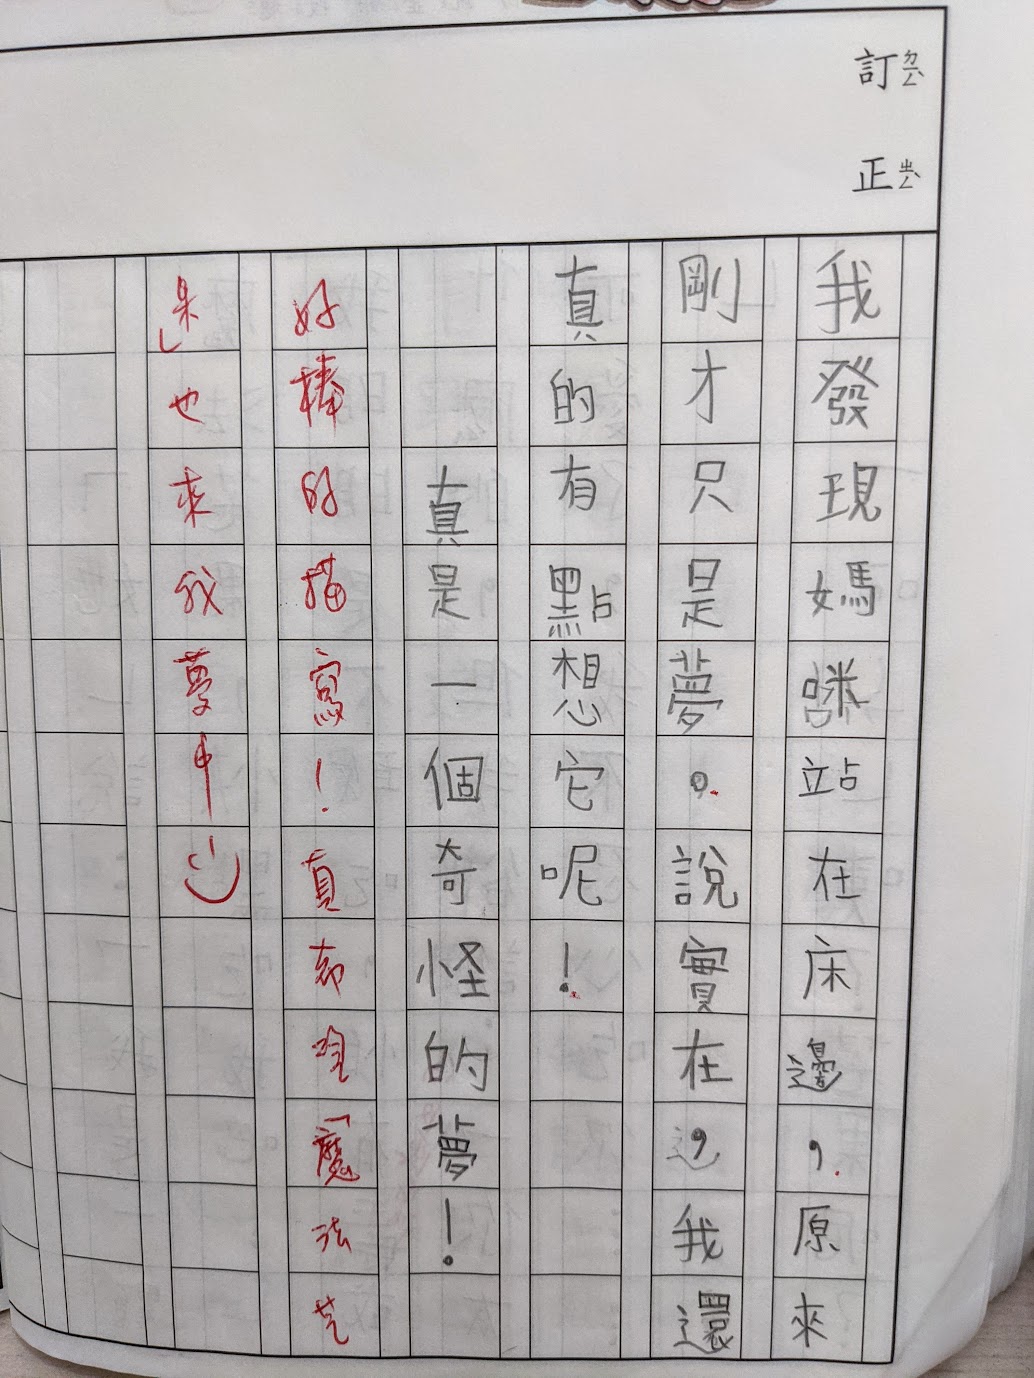 訂ㄉㄧㄥˋ正ㄓㄥˋ
我發現媽咪站在床邊，原來
剛才只是夢。說實在，我還
真的有點想它呢！
真是一個奇怪的夢！
好棒的描寫！真希望「魔法
也來我夢中